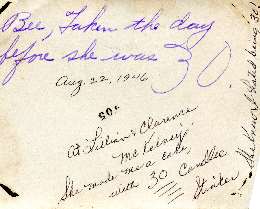 Bee, Taken the day
before she was 30
Aug. 22, 1946
50¢
At Lillian & Clarence
McKeiney
She made me a cake
with 30 Candles
Stinker
She Knew I hated being 30!